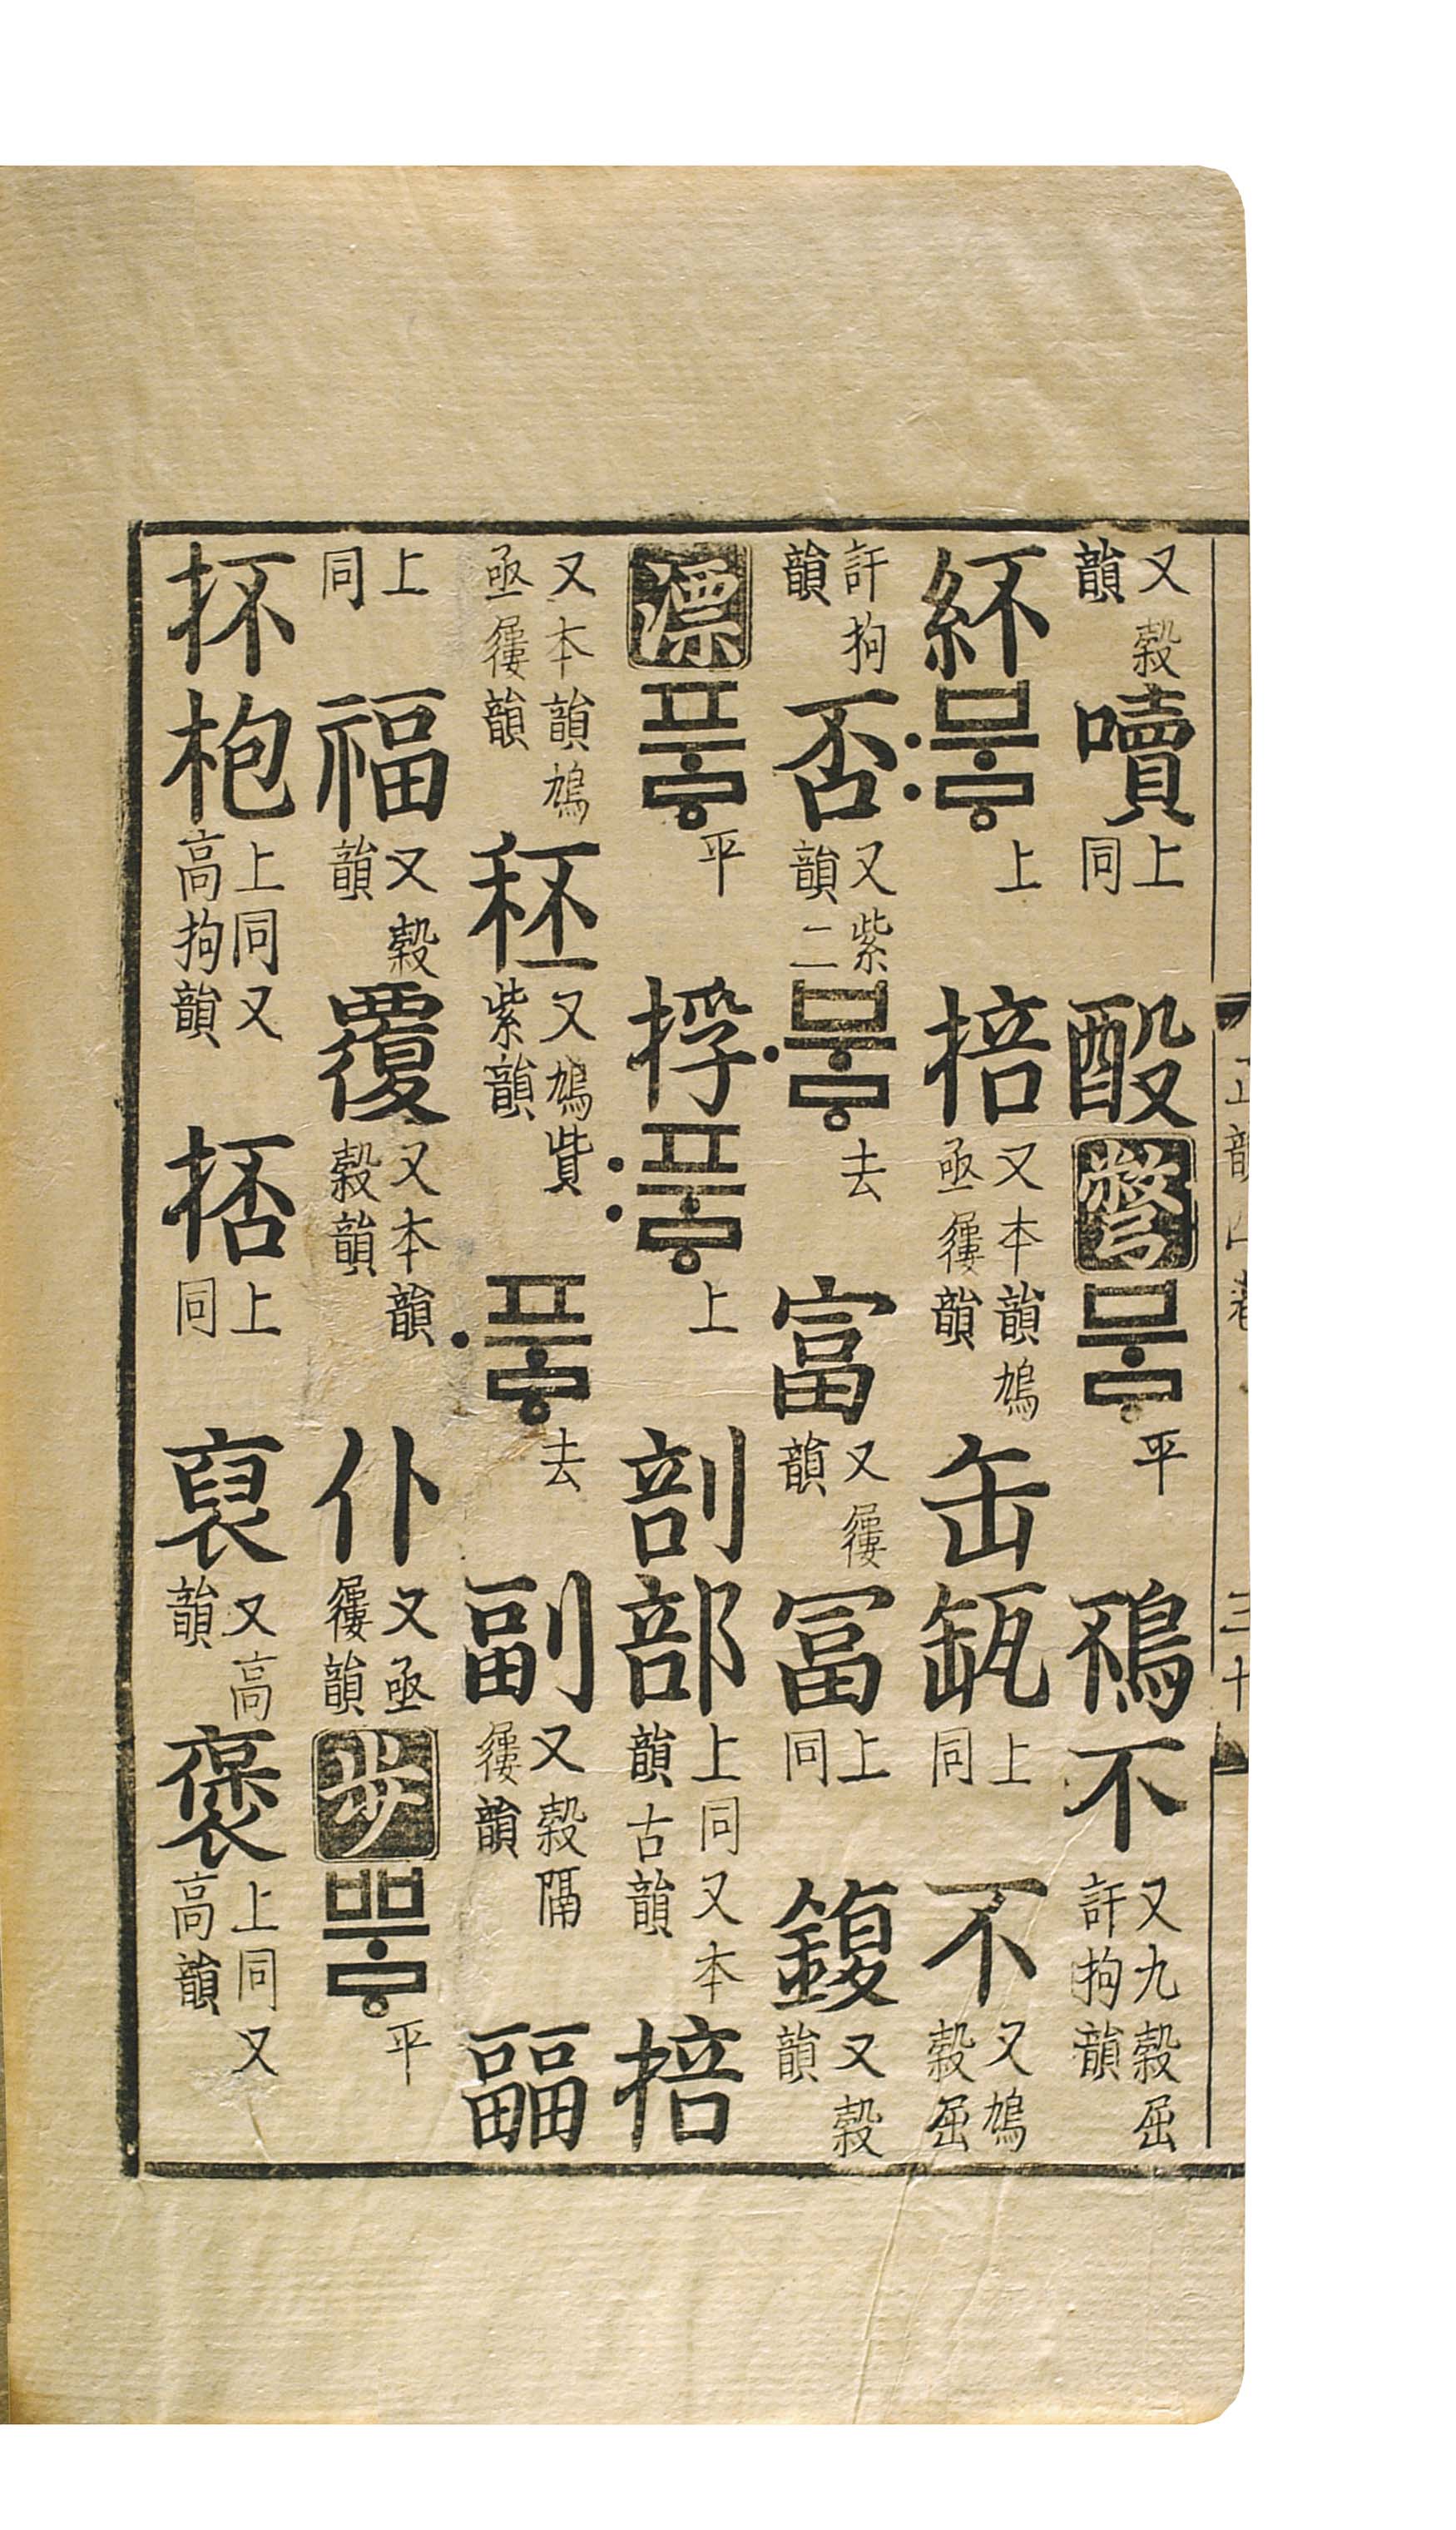 又穀韻 上同 酘 彆 부ᇢ 平 鴀 不 又九穀屈訐拘韻
紑 〯부ᇢ 上 掊 又本韻鳩亟屨韻 缶 缻 上同 不 又鳩穀屈
訐拘韻 否 又紫韻二 〮부ᇢ 去 富 又屨韻 冨 上同 鍑 又穀韻
漂 푸ᇢ 平 捊 〯푸ᇢ 上 剖 部 上同又本韻古韻 掊
又本韻鳩亟屨韻 秠 又鳩貲紫韻 〮푸ᇢ 去 副 又穀隔屨韻 疈
上同 福 又穀韻 覆 又本韻穀韻 仆 又亟屨韻 步 뿌ᇢ 平
抔 枹 上同又高拘韻 上同 裒 又高韻 褒 上同又高韻